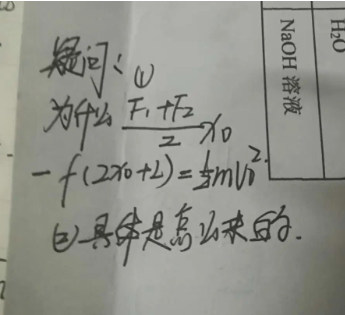 疑问：①
为什么 (F₁+F₂)/2 x₀
－f(2x₀+L)=½mv₀².
②具体是怎么来的.
NaOH 溶液
H₂O